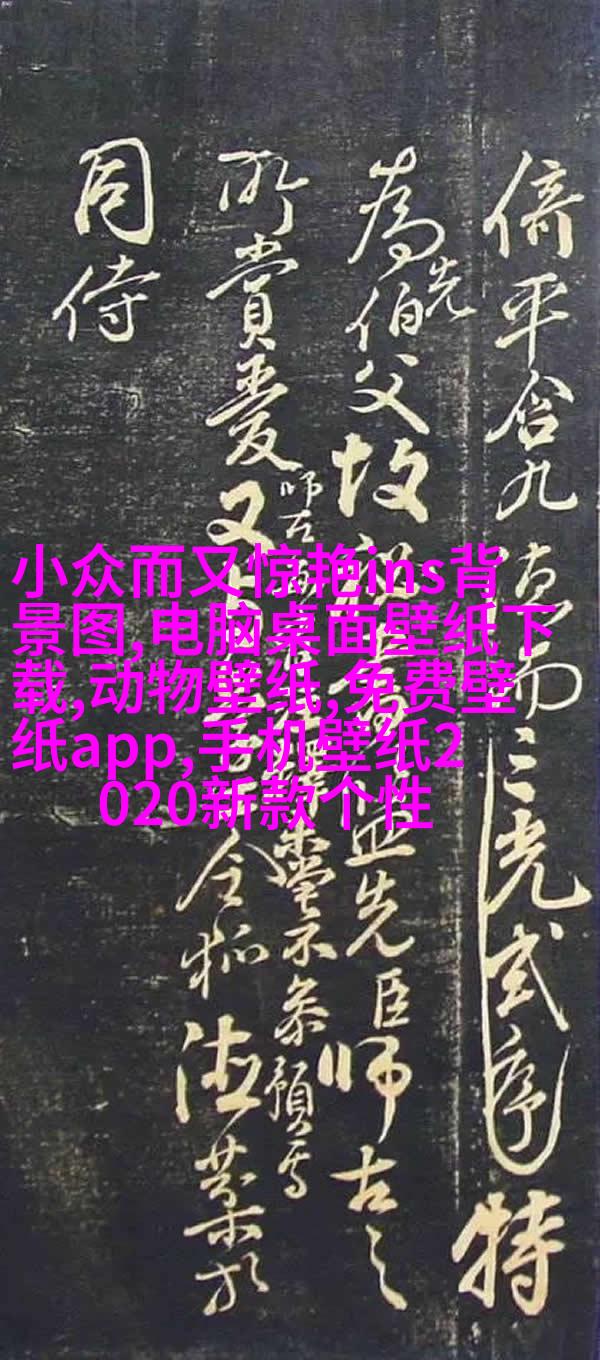 小众而又惊艳ins背
景图,电脑桌面壁纸下
载,动物壁纸,免费壁
纸app,手机壁纸2
020新款个性
平合九 而 光式序特
為先伯父故 先臣師古之
所賞愛又 令狐德棻於
同侍